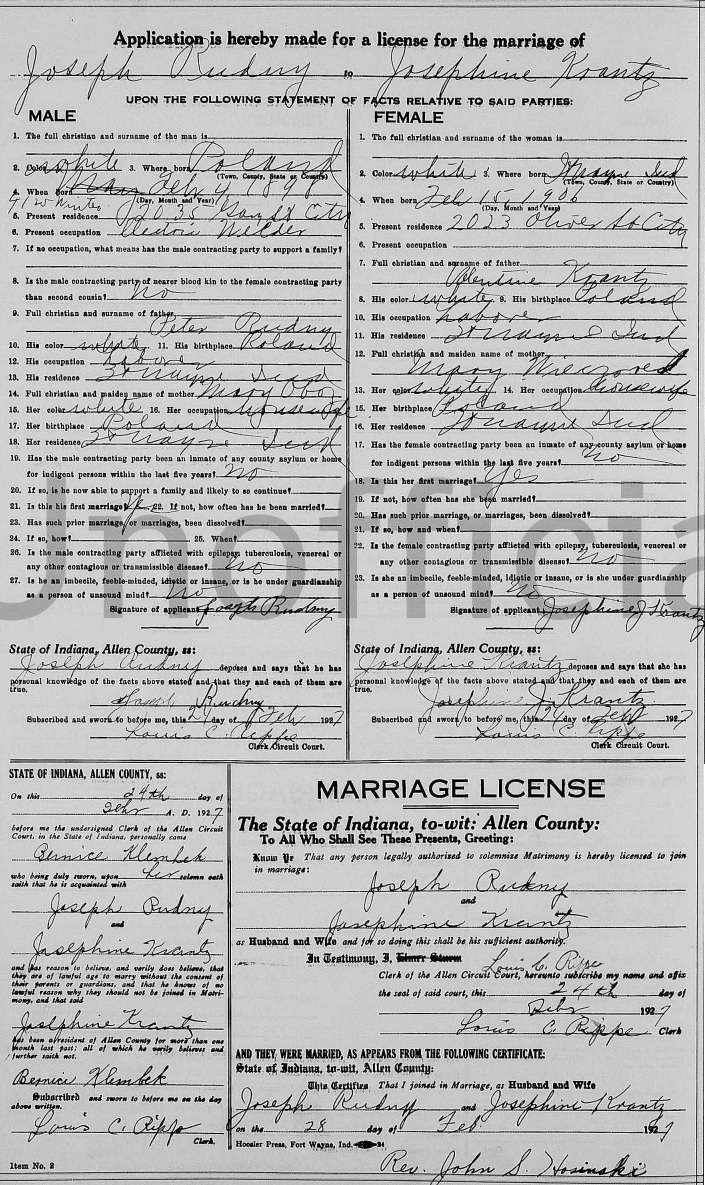 Application is hereby made for a license for the marriage of
Joseph Rudny to Josephine Krantz
UPON THE FOLLOWING STATEMENT OF FACTS RELATIVE TO SAID PARTIES:
MALE
1. The full christian and surname of the man is
2. Color white 3. Where born Poland
(Town, County, State or Country)
4. When born Feb 4 1898
(Day, Month and Year)
5. Present residence City
6. Present occupation Electric Welder
7. If no occupation, what means has the male contracting party to support a family?
8. Is the male contracting party of nearer blood kin to the female contracting party
than second cousin? No
9. Full christian and surname of father
Peter Rudny
10. His color white 11. His birthplace Poland
12. His occupation Laborer
13. His residence Ft Wayne Ind
14. Full christian and maiden name of mother Mary
15. Her color white 16. Her occupation Housewife
17. Her birthplace Poland
18. Her residence Ft Wayne Ind
19. Has the male contracting party been an inmate of any county asylum or home
for indigent persons within the last five years? No
20. If so, is he now able to support a family and likely to so continue?
21. Is this his first marriage? 22. If not, how often has he been married?
23. Has such prior marriage, or marriages, been dissolved?
24. If so, how? 25. When?
26. Is the male contracting party afflicted with epilepsy, tuberculosis, venereal or
any other contagious or transmissible disease? No
27. Is he an imbecile, feeble-minded, idiotic or insane, or is he under guardianship
as a person of unsound mind? No
Signature of applicant Joseph Rudny
State of Indiana, Allen County, ss:
Joseph Rudny deposes and says that he has
personal knowledge of the facts above stated and that they and each of them are
true.
Joseph Rudny
Subscribed and sworn to before me, this 24 day of Feb 1927
Louis C. Rippe
Clerk Circuit Court.
FEMALE
1. The full christian and surname of the woman is
2. Color white 3. Where born Ft Wayne Ind
(Town, County, State or Country)
4. When born Feb 15 1906
(Day, Month and Year)
5. Present residence 2023 Oliver St City
6. Present occupation
7. Full christian and surname of father
Valentine Krantz
8. His color white 9. His birthplace Poland
10. His occupation Laborer
11. His residence Ft Wayne Ind
12. Full christian and maiden name of mother
Mary
13. Her color white 14. Her occupation Housewife
15. Her birthplace Poland
16. Her residence Ft Wayne Ind
17. Has the female contracting party been an inmate of any county asylum or home
for indigent persons within the last five years? No
18. Is this her first marriage? Yes
19. If not, how often has she been married?
20. Has such prior marriage, or marriages, been dissolved?
21. If so, how and when?
22. Is the female contracting party afflicted with epilepsy, tuberculosis, venereal or
any other contagious or transmissible disease? No
23. Is she an imbecile, feeble-minded, idiotic or insane, or is she under guardianship
as a person of unsound mind? No
Signature of applicant Josephine J Krantz
State of Indiana, Allen County, ss:
Josephine Krantz deposes and says that she has
personal knowledge of the facts above stated and that they and each of them are
true.
Josephine J. Krantz
Subscribed and sworn to before me, this 24 day of Feb 1927
Louis C. Rippe
Clerk Circuit Court.
Unofficia
STATE OF INDIANA, ALLEN COUNTY, ss:
On this 24th day of
Febr A. D. 1927
before me the undersigned Clerk of the Allen Circuit
Court, in the State of Indiana, personally came
Bernice Klembek
who being duly sworn, upon her solemn oath
saith that he is acquainted with
Joseph Rudny
and
Josephine Krantz
and has reason to believe, and verily does believe, that
they are of lawful age to marry without the consent of
their parents or guardians, and that he knows of no
lawful reason why they should not be joined in Matri-
mony, and that said
Josephine Krantz
has been a resident of Allen County for more than one
month last past; all of which he verily believes and
further saith not.
Bernice Klembek
Subscribed and sworn to before me on the day
above written.
Louis C. Rippe
Clerk.
Item No. 2
MARRIAGE LICENSE
The State of Indiana, to-wit: Allen County:
To All Who Shall See These Presents, Greeting:
Know Ye That any person legally authorized to solemnize Matrimony is hereby licensed to join
in marriage:
Joseph Rudny
and
Josephine Krantz
as Husband and Wife and for so doing this shall be his sufficient authority.
In Testimony, I, Elmer Sturm Louis C. Rippe
Clerk of the Allen Circuit Court, hereunto subscribe my name and affix
the seal of said court, this 24th day of
Febr 1927
Louis C. Rippe Clerk
AND THEY WERE MARRIED, AS APPEARS FROM THE FOLLOWING CERTIFICATE:
State of Indiana, to-wit, Allen County:
This Certifies That I joined in Marriage, as Husband and Wife
Joseph Rudny and Josephine Krantz
on the 28 day of Feb 1927
Hoosier Press, Fort Wayne, Ind.
Rev. John S. Hosinski